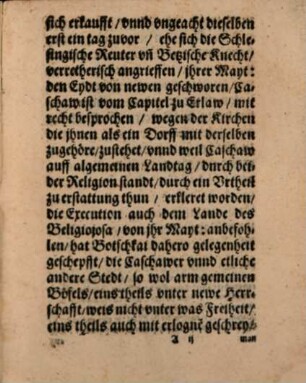 sich erkaufft / vnnd vngeacht dieselben
erst ein tag zuvor / ehe sich die Schle-
singische Reuter vñ Betzische Knecht /
verretherisch angrieffen / jhrer Mayt:
den Eydt von newen geschworen / Ca-
schaw ist vom Capitel zu Erlaw / mit
recht besprochen / wegen der Kirchen
die jhnen als ein Dorff mit derselben
zugehöre / zustehet / vnnd weil Caschaw
auff algemeinen Landtag / durch bei-
der Religion standt / durch ein Vrtheil
zu erstattung thun / erkleret worden /
die Execution auch dem Lande des
Beligiojosa / von jhr Mayt: anbefoh-
len / hat Botschkai dahero gelegenheit
gescheppfft, die Caschawer vnnd etliche
andere Stedt / so wol arm gemeinen
Böfels / eins theils vnter newe Herr-
schafft / weis nicht vnter was Freiheit /
eins theils auch mit erlogne geschrey /
A ij man